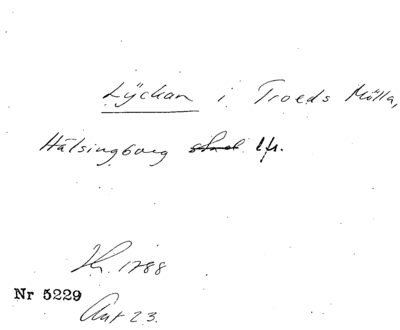 Lyckan i Troeds Mölla,
Hälsingborg lfs.
Hr. 1788
Nr 5229
Akt 23.